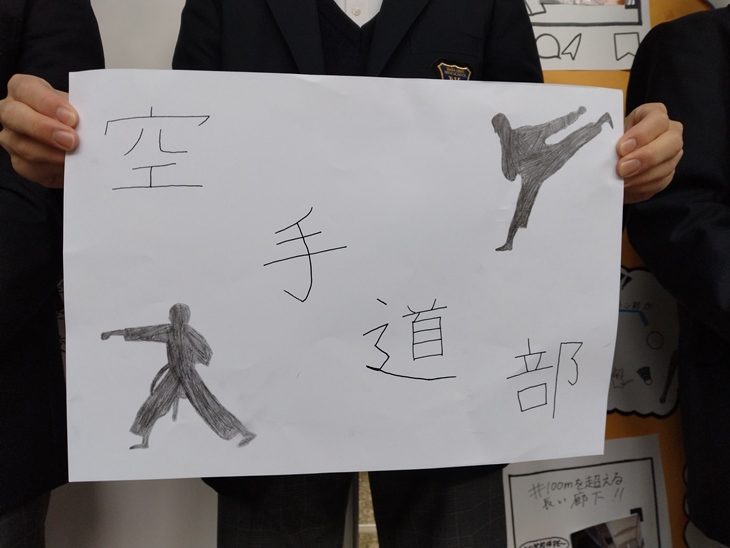 空手道部
#100mを超える
長い廊下!!